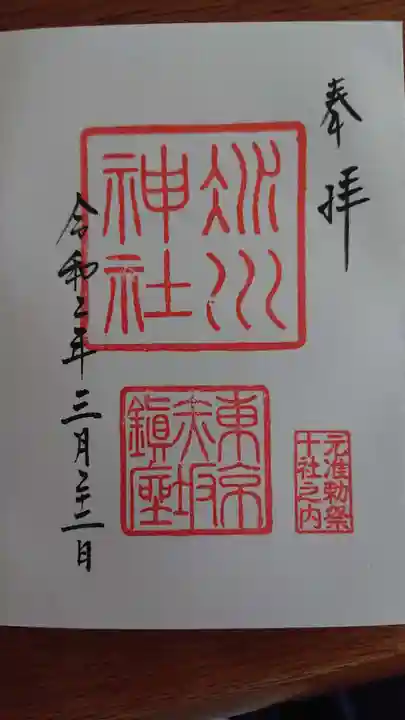 奉拝
氷川
神社
東京
赤坂
鎮座
元准勅祭
十社之内
令和二年三月二十二日